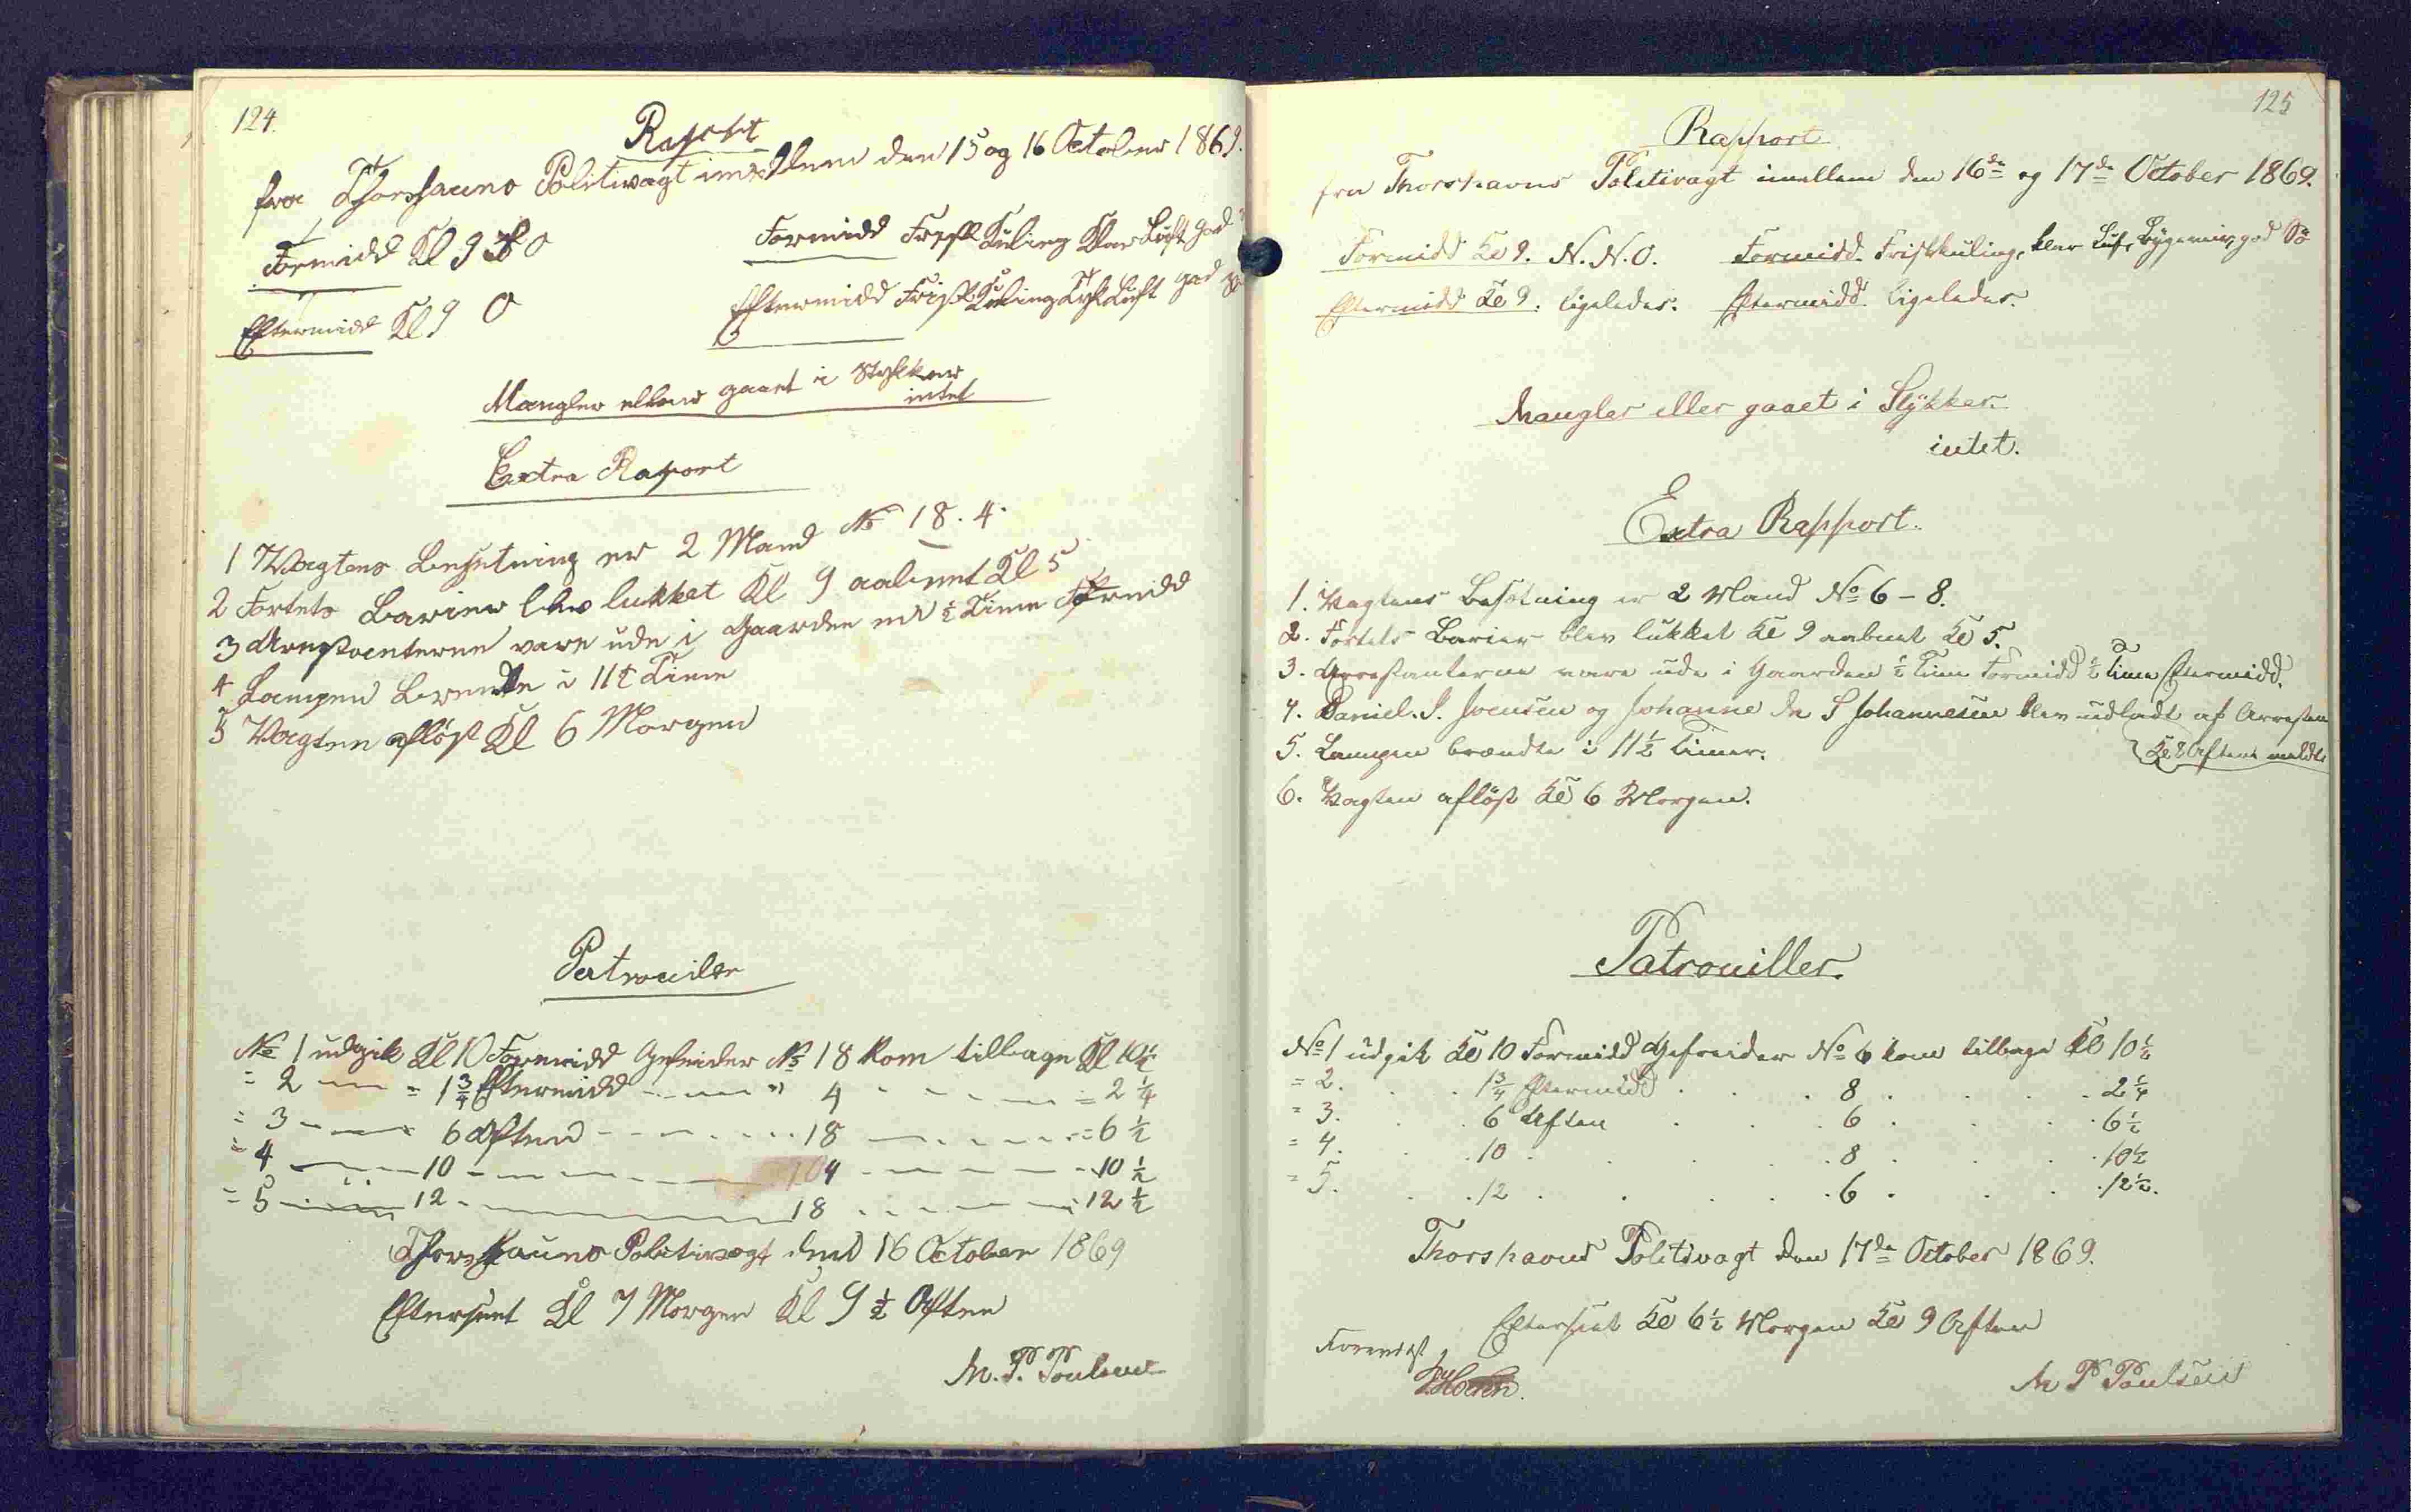 124.
Raport
fra Thorshauns Politivagt imellem den 15 og 16 October 1869.
Formidd Kl 9 O Formidd Frisk Kuling Klar Luft god
Eftermidd Kl 9 O Eftermidd Frisk Kuling Tyk Luft god
Mangler eller gaaet i Stykker
intet
Extra Raport
1 Vagtens Besetning er 2 Mand No 18. 4.
2 Fortets Barier blev lukket Kl 9 aabnet Kl 5
3 Arrestanterne vare ude i Gaarden en ½ Time Formidd
4 Lampen Brendte i 11½ Time
5 Vagten afløst Kl 6 Morgen
Patrouiler
No 1 udgik Kl 10 Formidd Gefreider No 18 kom tilbage Kl 10½
= 2 = 1¾ Eftermidd " 4 = 2¼
= 3 6 Aften 18 = 6½
= 4 10 4 10½
= 5 12 18 12½
Thorshauns Politivagt den 16 October 1869
Efterseet Kl 7 Morgen Kl 9½ Aften
M. P. Poulsen
125
Rapport
fra Thorshavns Politivagt imellem den 16de og 17de October 1869.
Formidd Kl 9. N.N.O. Formidd. Friskkuling, klar Luft, Bygeveir, god Sö
Eftermidd Kl 9. ligeledes. Eftermidd. ligeledes.
Mangler eller gaaet i Stykker.
intet.
Extra Rapport.
1. Vagtens Besætning er 2 Mand No 6 - 8.
2. Fortets Barier blev lukket Kl 9 aabnet Kl 5.
3. Arrestanterne vare ude i Gaarden ½ Time Formidd ½ Time Eftermidd.
4. Daniel. S. Joensen og Johanne de S Johannesen blev udladt af Arresten
Kl 8 Aften meldt
5. Lampen brændte i 11½ Timer.
6. Vagten afløst Kl 6 Morgen.
Patrouiller.
No 1 udgik Kl 10 Formidd Gefreider No 6 kom tilbage Kl 10½
= 2. 1¾ Eftermidd 8 2¼
= 3. 6 Aften 6 6½
= 4. 10 8 10½
= 5. 12 6 12½.
Thorshavns Politivagt den 17de October 1869.
Efterseet Kl 6½ Morgen Kl 9 Aften
M P Poulsen